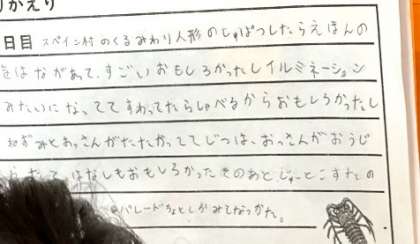 りかえり
日目 スペイン村のくるみわり人形のしゅぱつしたらえほんの
をはながあって、すごいおもしろかったしイルミネーション
みたいになっててすわってたらしゃべるからおもしろかったし
ねずみとおっさんがたたかっててじつは、おっさんがおうじ
はなしもおもしろかった そのあと
パレードちょとしかみてなかった。